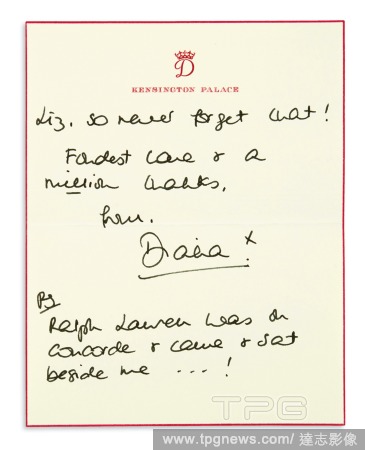 D
KENSINGTON PALACE
Liz, so never forget that!
Fondest love & a
million thanks,
from,
Diana x
PS
Ralph Lauren was on
concorde & came & sat
beside me ---!
TPG
www.tpgnews.com/ 達志影像